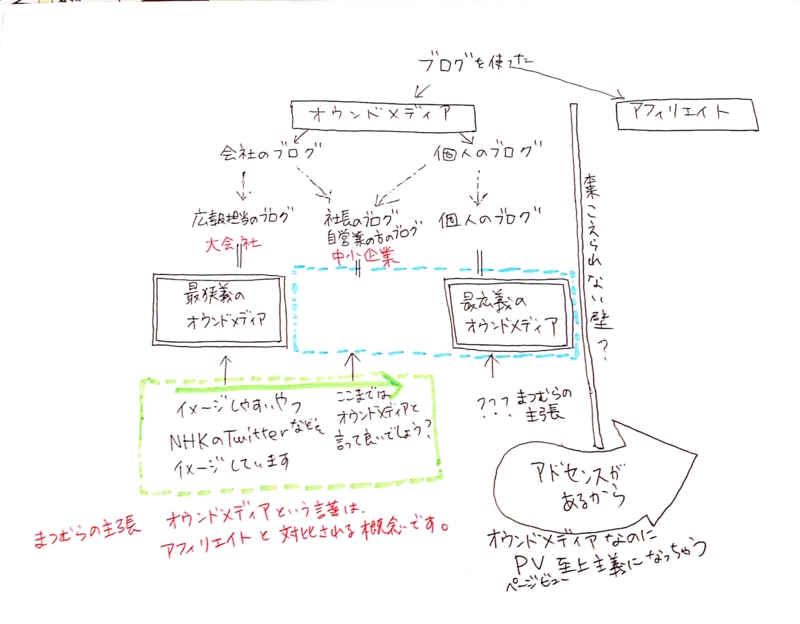 ブログを使った
オウンドメディア
アフィリエイト
会社のブログ
個人のブログ
広報担当のブログ
大会社
社長のブログ
自営業の方のブログ
中小企業
個人のブログ
こえられない壁?
最狭義の
オウンドメディア
最広義の
オウンドメディア
イメージしやすいやつ
NHKのTwitterなどを
イメージしています
ここまでは
オウンドメディアと
言って良いでしょう?
??? まつむらの
主張
アドセンスが
あるから
まつむらの主張 オウンドメディアという言葉は、
アフィリエイトと対比される概念です。
オウンドメディアなのに
PV至上主義になっちゃう
ページビュー